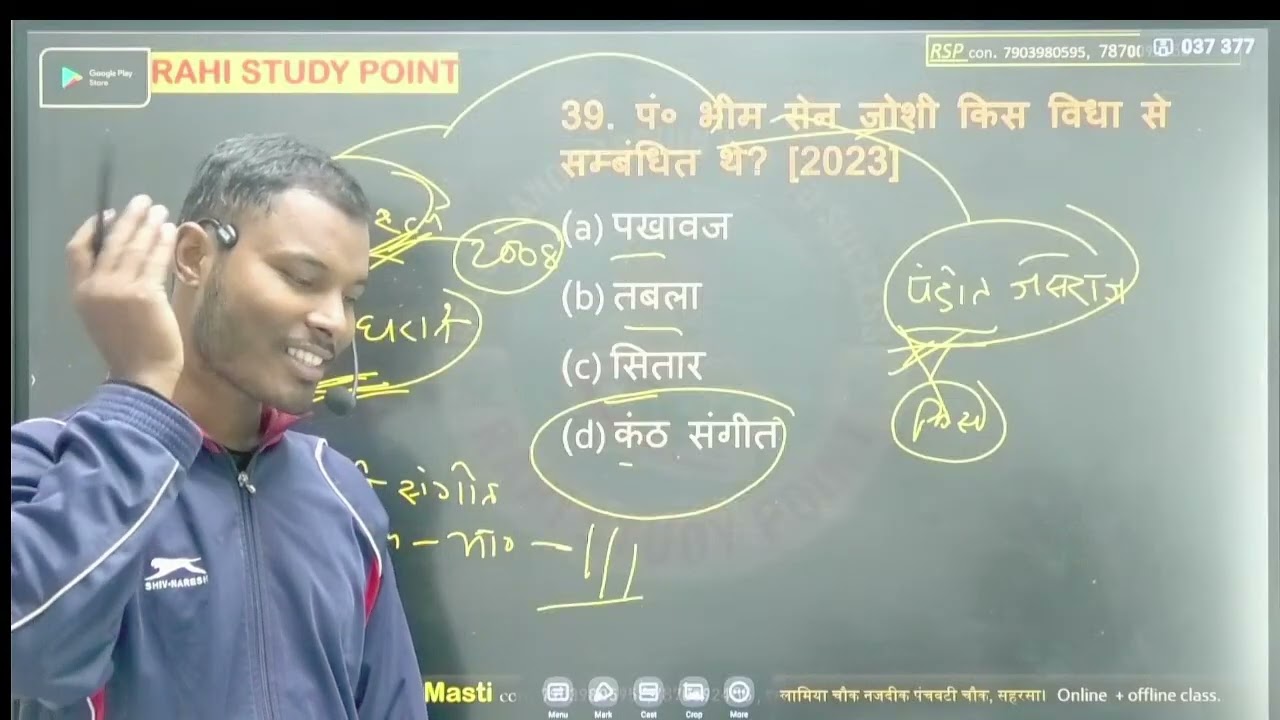 Google Play
Store
RAHI STUDY POINT
RSP con. 7903980595, 78700
037 377
39. पं० भीम सेन जोशी किस विधा से
सम्बंधित थे? [2023]
(a) पखावज
2008
पंडित जसराज
(b) तबला
(c) सितार
(d) कंठ संगीत
SHIV-NARESH
Masti
Menu
Mark
Cast
Crop
More
लामिया चौक नजदीक पंचवटी चौक, सहरसा। Online + offline class.